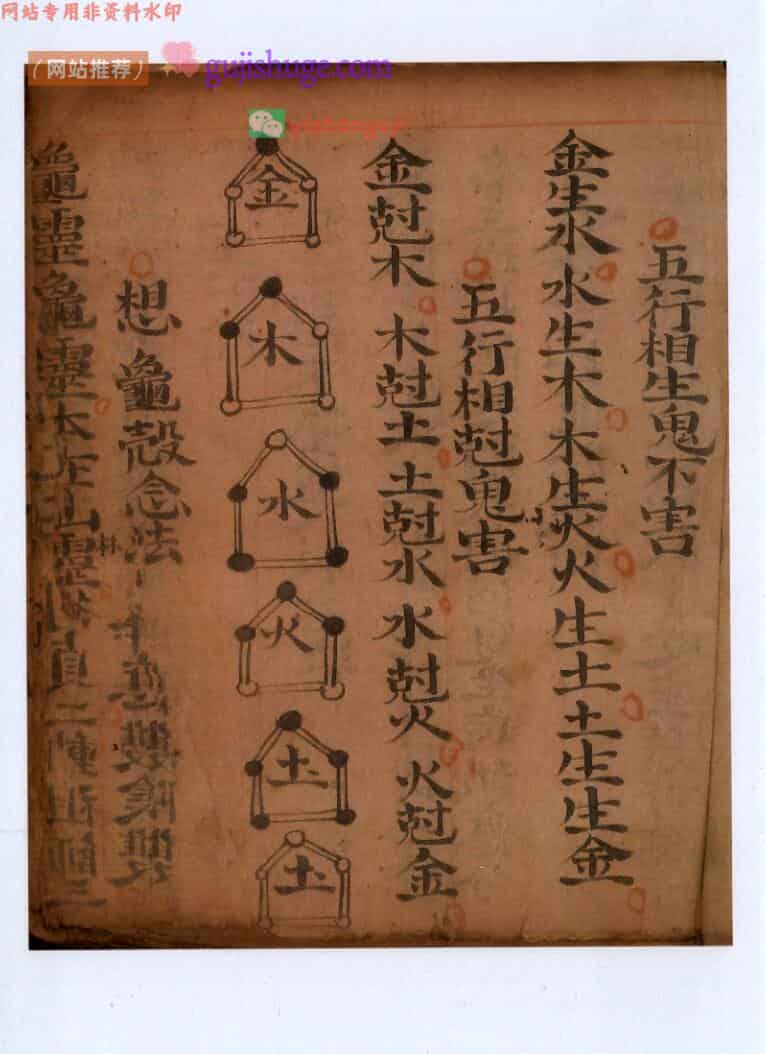 网站专用非资料水印
（网站推荐）
gujishuge.com
五行相生鬼不害
金生水 水生木 木生火 火生土 土生生金
五行相尅鬼害
金尅木 木尅土 土尅水 水尅火 火尅金
金
木
水
火
土
土
想龜殻念法
龜靈龜靈 祖師三